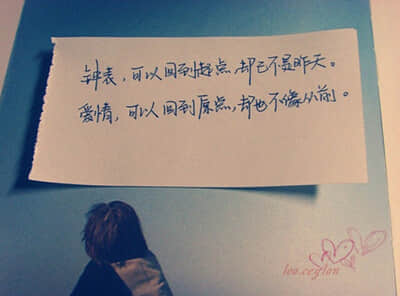 钟表，可以回到起点，却已不是昨天。
爱情，可以回到原点，却也不像从前。
leo.ceylan